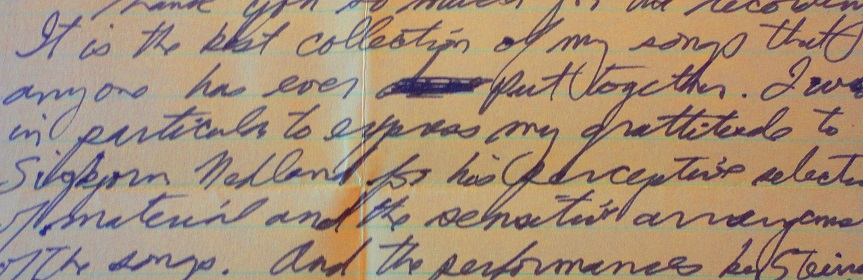 thank you so much for the recordin
It is the best collection of my songs that
anyone has ever put together. I wa
in particular to express my grattitude to
Sigbjorn Nedland for his perceptive selecti
of material and the sensitive arrangeme
of the songs. And the performances by Stein